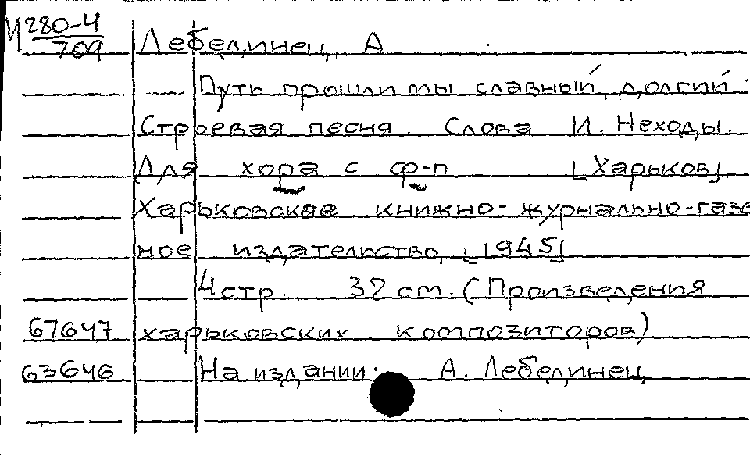 М 280-4
709 Лебединец, А
Путь прошли мы славный, долгий.
Строевая песня. Слова И. Неходы.
Для хора с ф-п [Харьков]
Харьковское книжно-журнально-газет
ное издательство, [1945]
4 стр. 32 cm. (Произведения
67647 харьковских композиторов)
63646 На издании: А. Лебединец